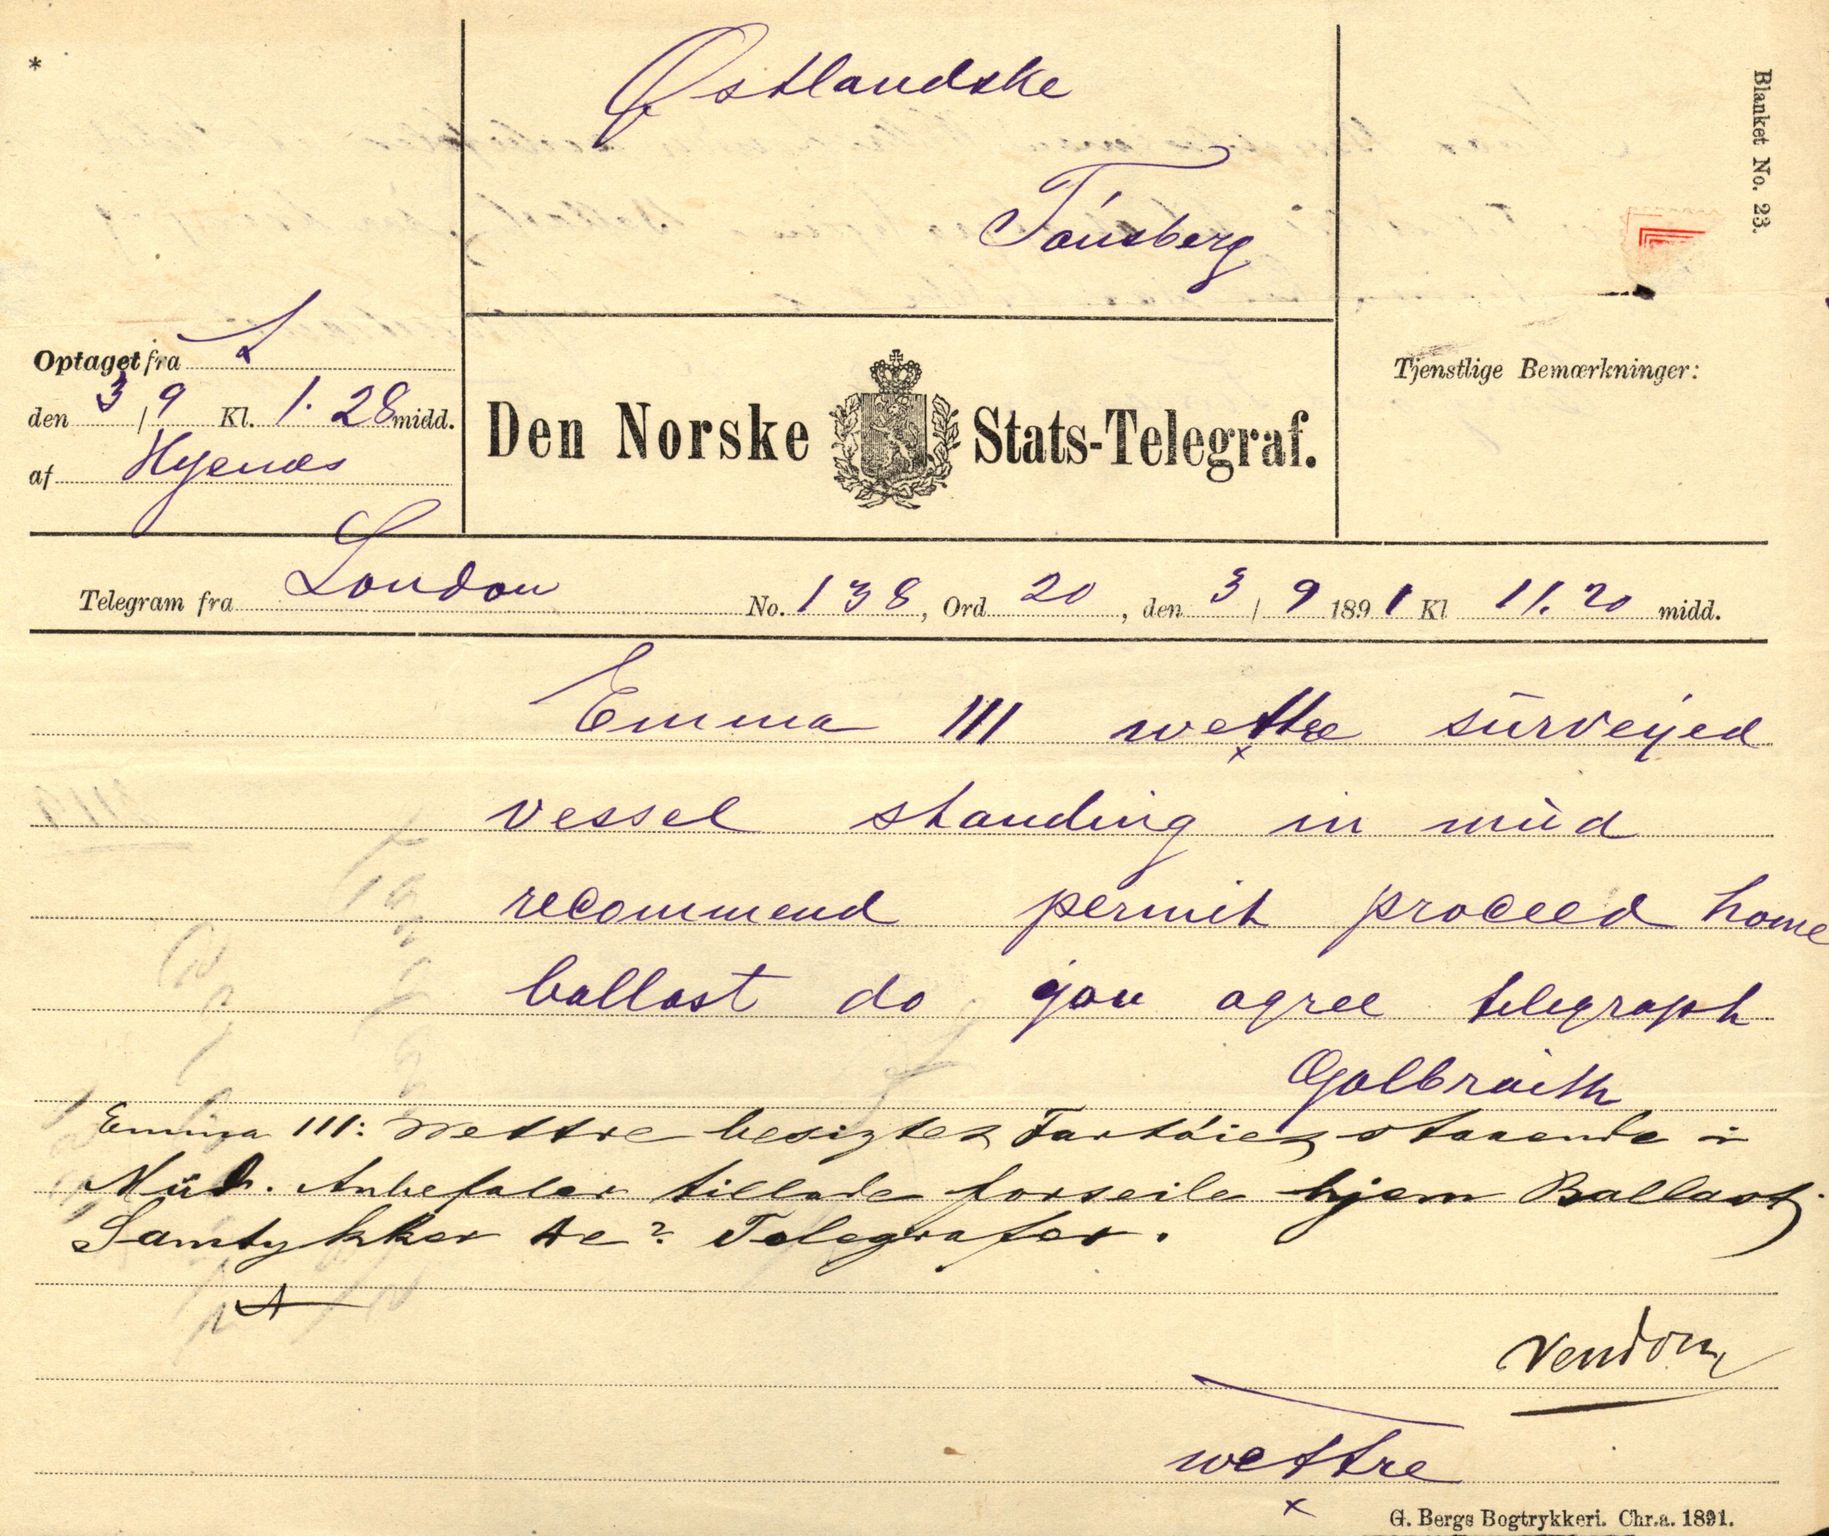 *
Østlandske
Tónsberg
Blanket No. 23.
Optaget fra L
den 3/9 Kl. 1.28 midd.
af Hyenæs
Den Norske Stats-Telegraf.
Tjenstlige Bemærkninger:
Telegram fra London No. 138, Ord 20, den 3/9 1891 Kl 11.20 midd.
Emma III wettre surveyed
vessel standing in mud
recommend permit proceed home
ballast do you agree telegraph
Galbraith
Emma III: Wettre besigtet Fartöiet staaende i
Müd. Anbefaler tillade forseile hjem Ballast.
Samtykker De? Telegrafer.
wettre
x
G. Bergs Bogtrykkeri. Chr.a. 1891.